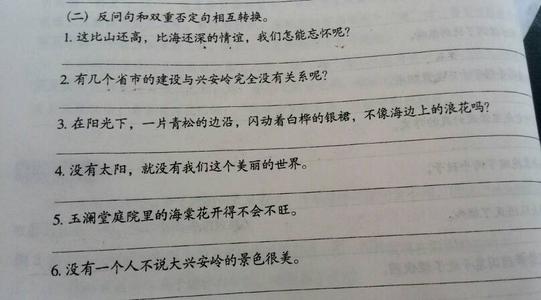 （二）反问句和双重否定句相互转换。
1. 这比山还高，比海还深的情谊，我们怎能忘怀呢？
2. 有几个省市的建设与兴安岭完全没有关系呢？
3. 在阳光下，一片青松的边沿，闪动着白桦的银裙，不像海边上的浪花吗？
4. 没有太阳，就没有我们这个美丽的世界。
5. 玉澜堂庭院里的海棠花开得不会不旺。
6. 没有一个人不说大兴安岭的景色很美。